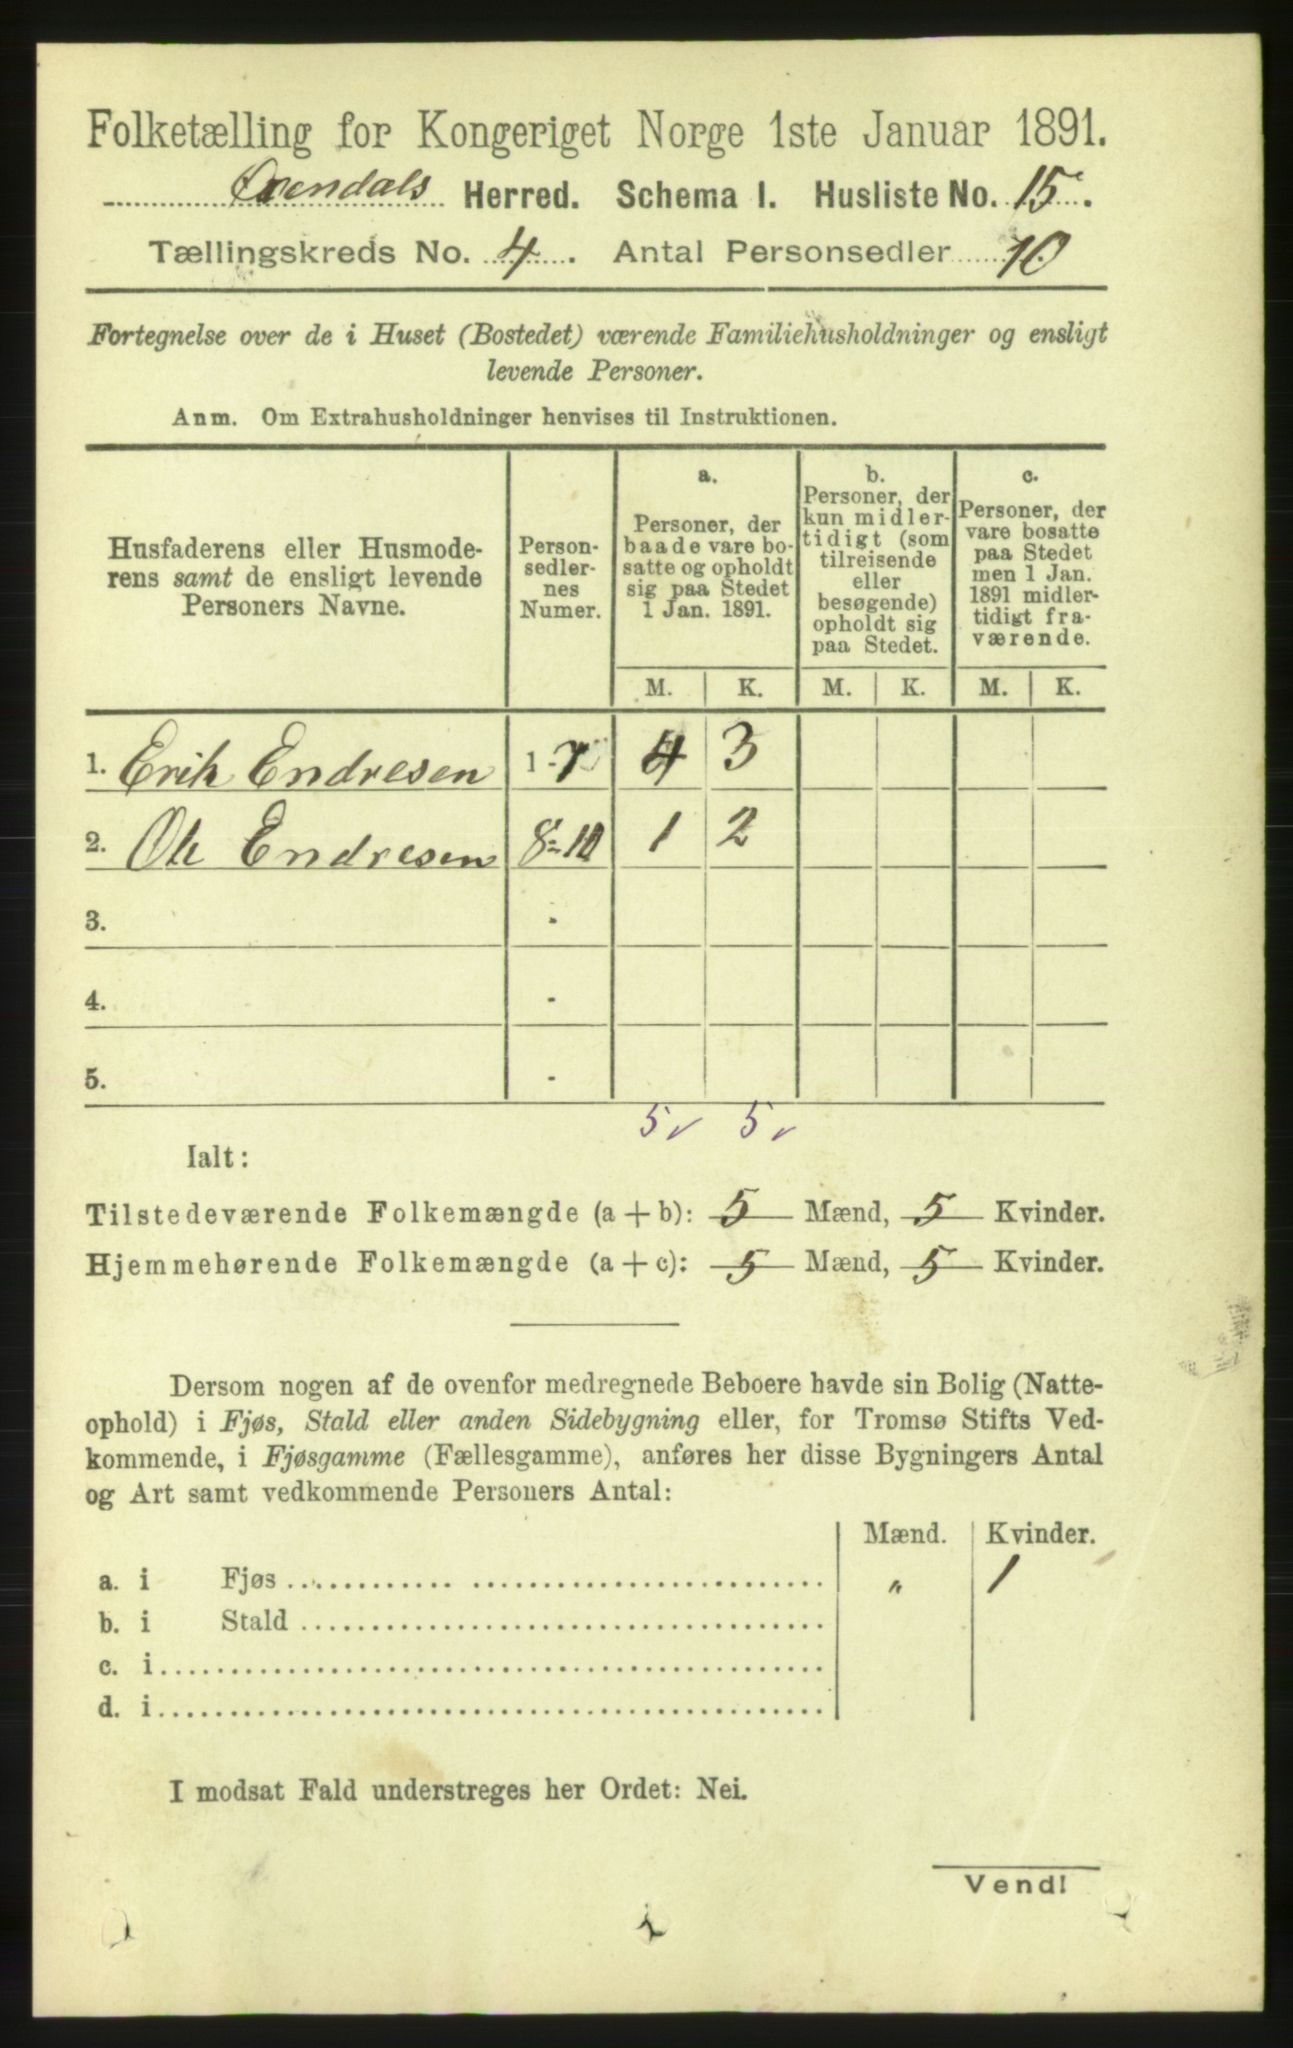 Folketælling for Kongeriget Norge 1ste Januar 1891.
Øxendals Herred. Schema I. Husliste No. 15.
Tællingskreds No. 4. Antal Personsedler 10
Fortegnelse over de i Huset (Bostedet) værende Familiehusholdninger og ensligt
levende Personer.
Anm. Om Extrahusholdninger henvises til Instruktionen.
Husfaderens eller Husmode-
rens samt de ensligt levende
Personers Navne.
Person-
sedler-
nes
Numer.
a.
Personer, der
baade vare bo-
satte og opholdt
sig paa Stedet
1 Jan. 1891.
b.
Personer, der
kun midler-
tidigt (som
tilreisende
eller
besøgende)
opholdt sig
paa Stedet.
c.
Personer, der
vare bosatte
paa Stedet
men 1 Jan.
1891 midler-
tidigt fra-
værende.
M. K. M. K. M. K.
1. Erik Endresen 1-7 4 3
2. Ole Endresen 8-10 1 2
3. -
4. -
5. -
5 5
Ialt:
Tilstedeværende Folkemængde (a+b): 5 Mænd, 5 Kvinder.
Hjemmehørende Folkemængde (a+c): 5 Mænd, 5 Kvinder.
Dersom nogen af de ovenfor medregnede Beboere havde sin Bolig (Natte-
ophold) i Fjøs, Stald eller anden Sidebygning eller, for Tromsø Stifts Ved-
kommende, i Fjøsgamme (Fællesgamme), anføres her disse Bygningers Antal
og Art samt vedkommende Personers Antal:
Mænd. Kvinder.
a. i Fjøs " 1
b. i Stald
c. i
d. i
I modsat Fald understreges her Ordet: Nei.
Vend!